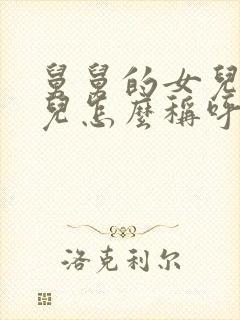 舅舅的女兒
兒怎麼稱呼
洛克利尔